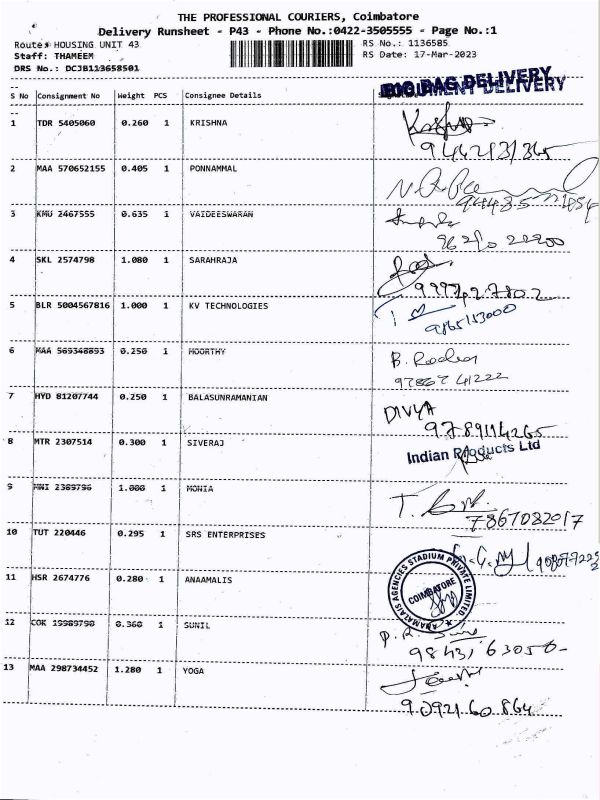 THE PROFESSIONAL COURIERS, Coimbatore
Delivery Runsheet - P43 - Phone No.:0422-3505555 - Page No.:1
Route: HOUSING UNIT 43 RS No.: 1136585
Staff: THAMEEM RS Date: 17-Mar-2023
DRS No.: DCJB113658501
S No Consignment No Weight PCS Consignee Details DELIVERY
1 TDR 5405060 0.260 1 KRISHNA
2 MAA 570652155 0.405 1 PONNAMMAL
3 KMU 2467555 0.635 1 VAIDEESWARAN
4 SKL 2574798 1.080 1 SARAHRAJA
5 BLR 5004567816 1.000 1 KV TECHNOLOGIES
9865153000
6 MAA 569348893 0.250 1 MOORTHY B.
97867 41222
7 HYD 81207744 0.250 1 BALASUNRAMANIAN DIVYA
9789114265
8 MTR 2307514 0.300 1 SIVERAJ Indian Products Ltd
9 MNI 2389796 1.000 1 MONIA T.
7867082017
10 TUT 220446 0.295 1 SRS ENTERPRISES
11 HSR 2674776 0.280 1 ANAAMALIS ANAMALAIS AGENCIES STADIUM PRIVATE LIMITED. COIMBATORE
12 COK 19989790 0.360 1 SUNIL
13 MAA 298734452 1.280 1 YOGA
90921 60 864